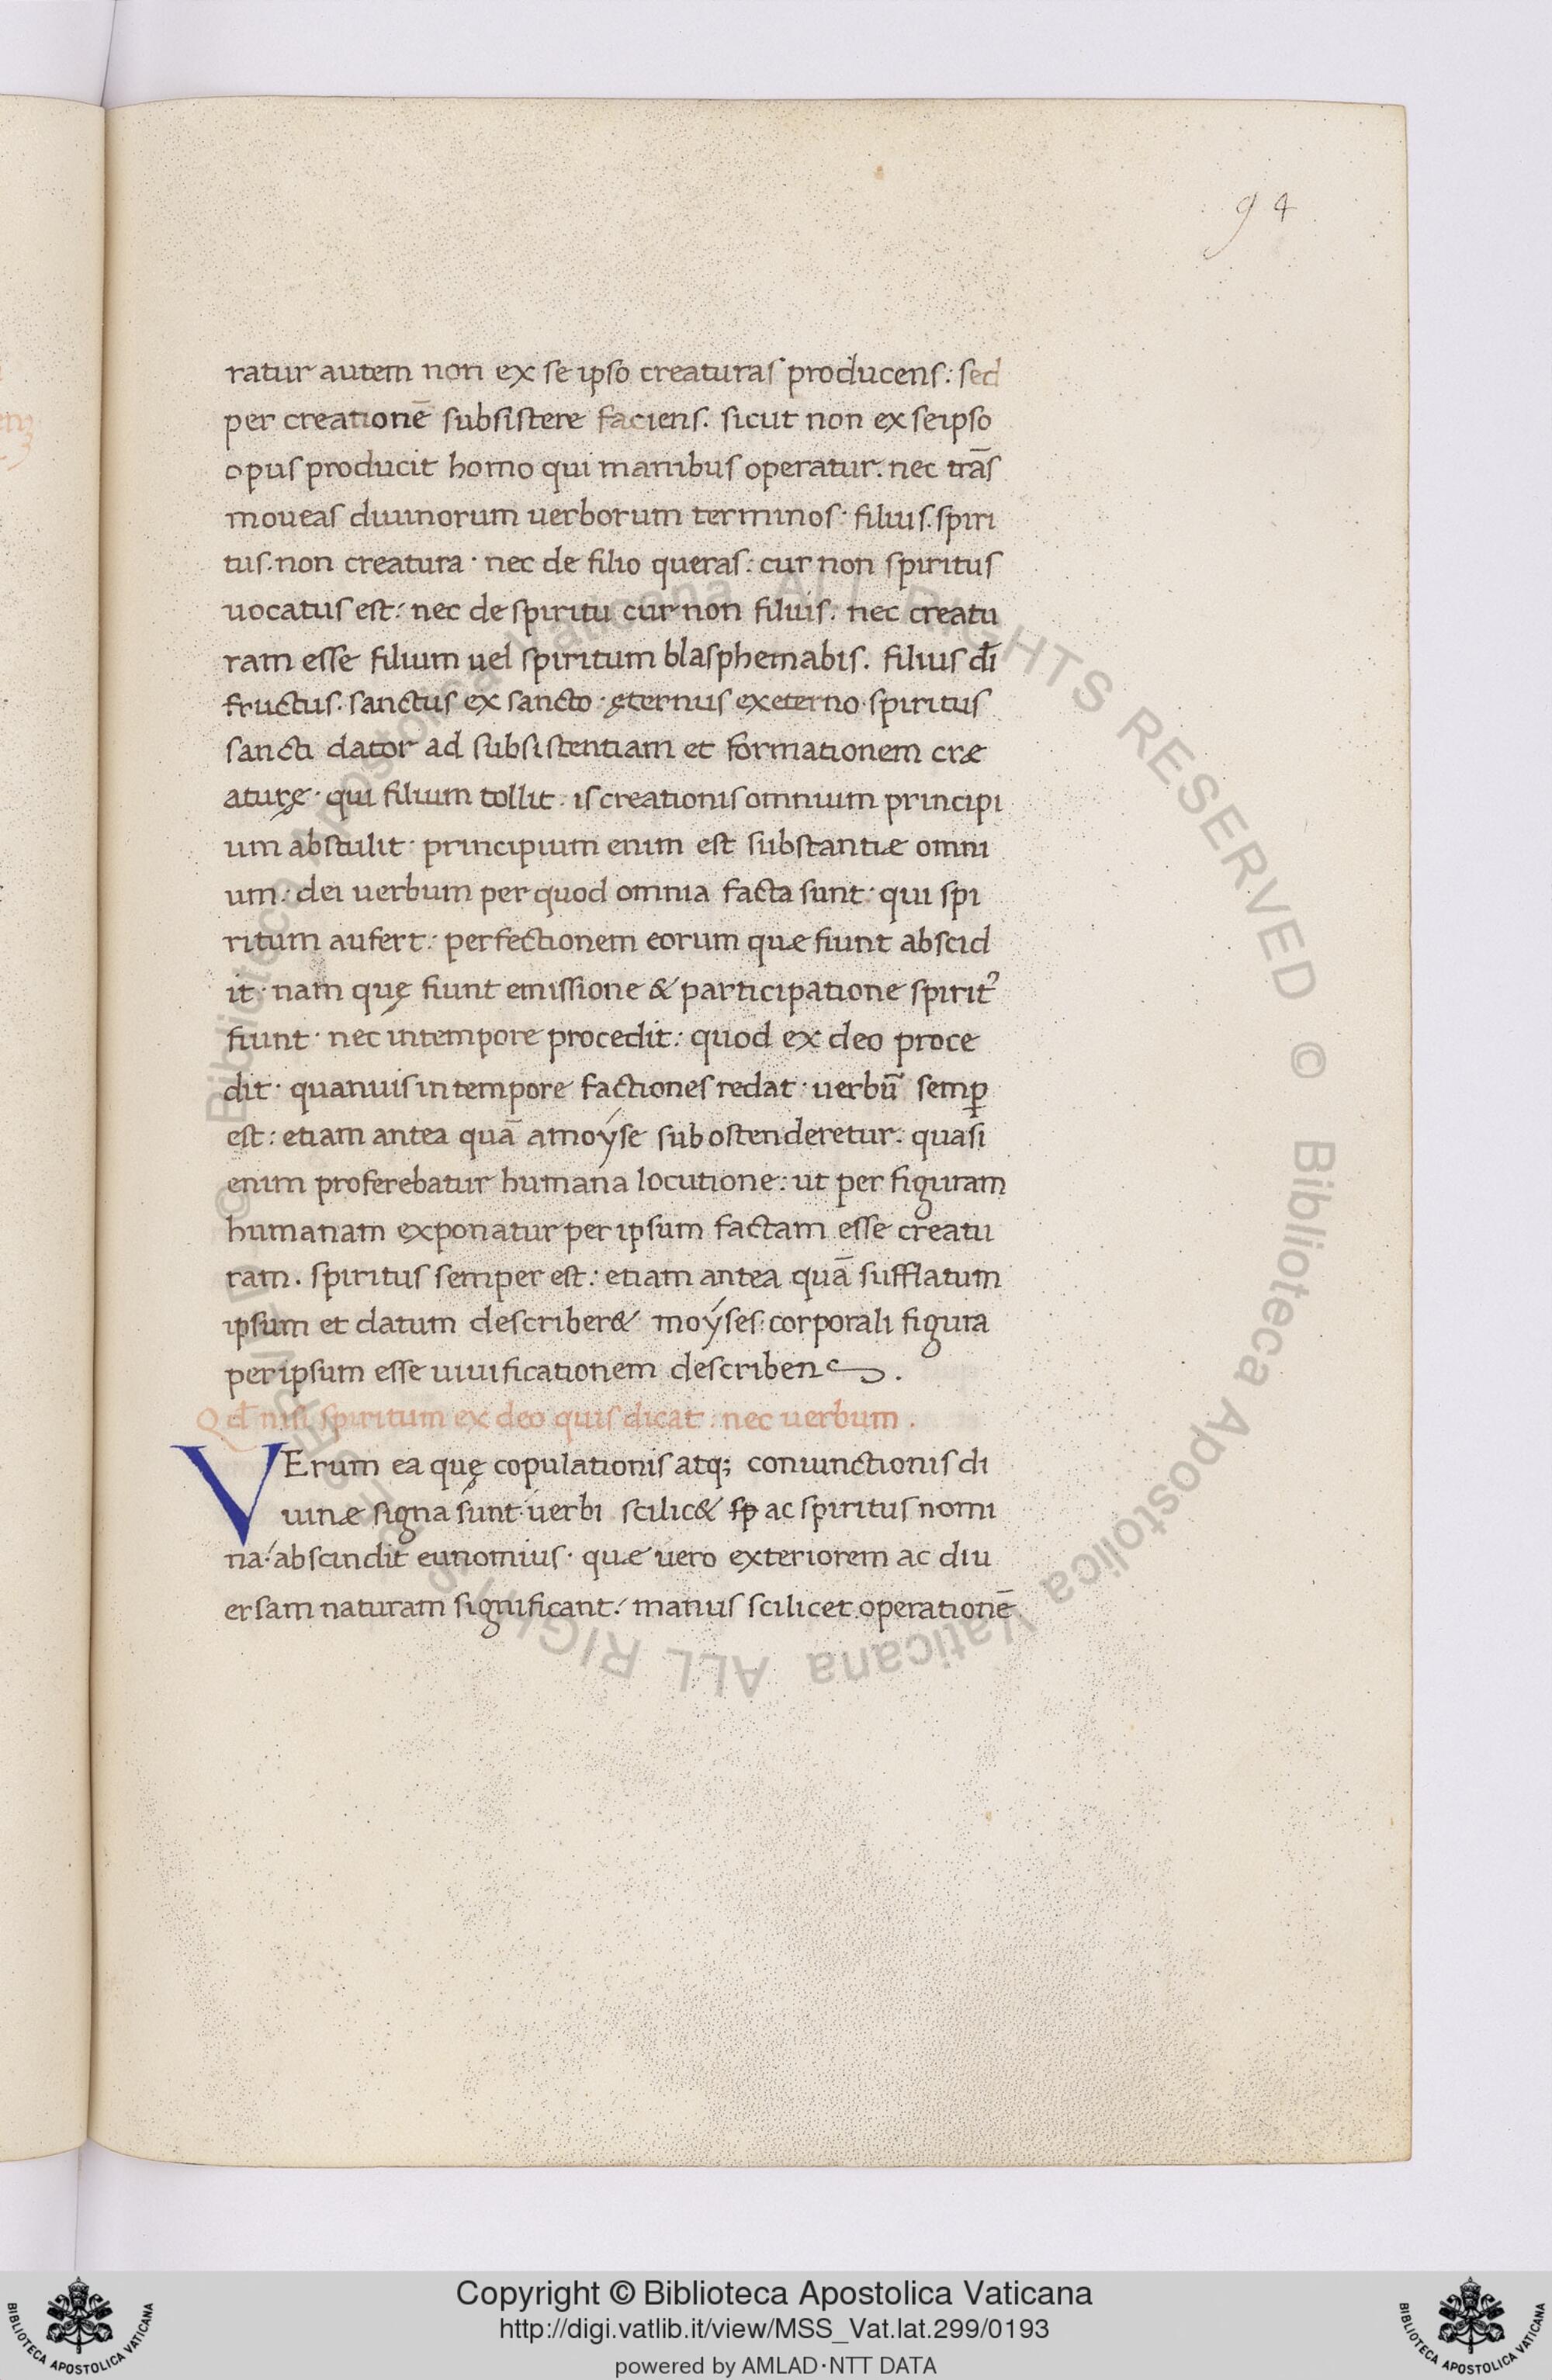 94
ratur autem non ex se ipso creaturas producens: sed
per creationē subsistere faciens. sicut non ex seipso
opus producit homo qui manibus operatur. nec trās
moueas diuinorum uerborum terminos· filius. spiri
tus. non creatura· nec de filio queras: cur non spiritus
uocatus est: nec de spiritu cur non filius. nec creatu
ram esse filium uel spiritum blasphemabis. filius dī
fructus. sanctus ex sancto· ęternus ex eterno· spiritus
sancti dator ad subsistentiam et formationem cræ
aturę· qui filium tollit. is creationis omnium principi
um abstulit· principium enim est substantiæ omni
um: dei uerbum per quod omnia facta sunt· qui spi
ritum aufert: perfectionem eorum quæ fiunt abscid
it· nam quę fiunt emissione & participatione spiritꝰ
fiunt· nec in tempore procedit: quod ex deo proce
dit· quanuis in tempore factiones redat· uerbū semꝑ
est: etiam antea quā a moýse sub ostenderetur: quasi
enim proferebatur humana locutione: ut per figuram
humanam exponatur per ipsum factam esse creatu
ram. spiritus semper est: etiam antea quā sufflatum
ipsum et datum describer& moýses: corporali figura
per ipsum esse uiuificationem describens.
Qđ nisi spiritum ex deo quis dicat: nec uerbum.
VErum ea quę copulationis atq; coniunctionis di
uinæ signa sunt· uerbi scilic& sp ac spiritus nomi
na: abscindit eunomius· quæ uero exteriorem ac diu
ersam naturam significant: manus scilicet operationē
Copyright © Biblioteca Apostolica Vaticana
http://digi.vatlib.it/view/MSS_Vat.lat.299/0193
powered by AMLAD·NTT DATA